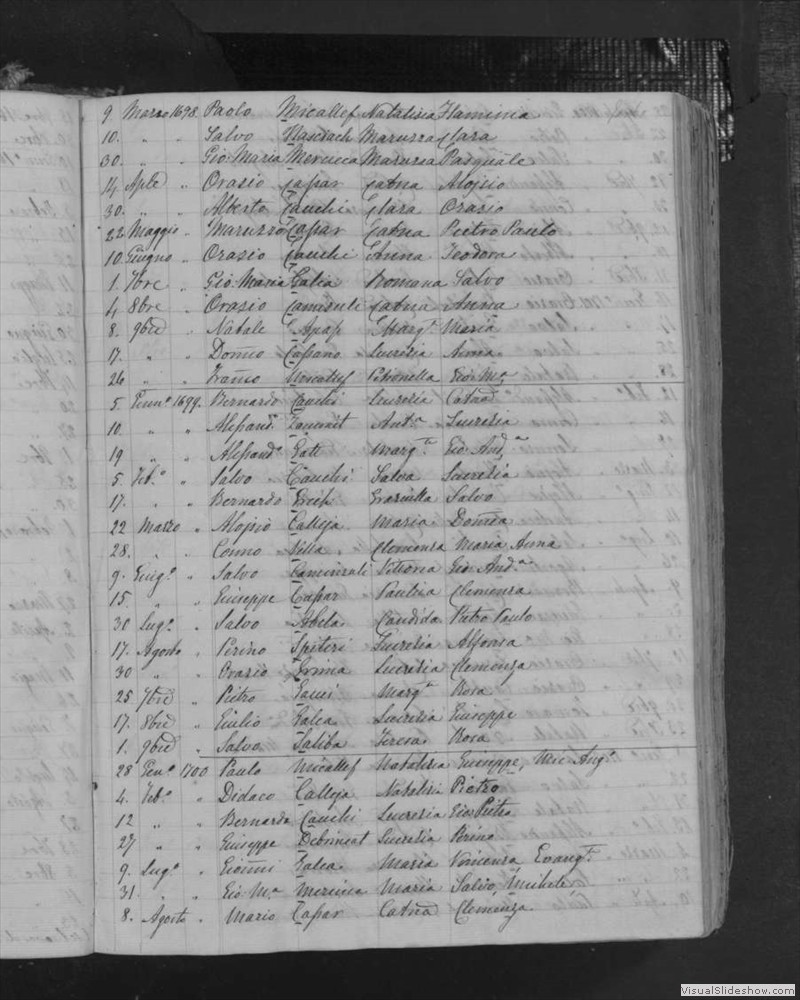 9. Marzo 1698. Paolo Micallef Natalisia Flaminia
10. " " Salvo Muscrach Maruzza Clara
30. " " Gio: Maria Mernica Maruzza Pasquale
14. Aple " Orasio Caspar Catna Alojsio
30. " " Alberto Cauchi Clara Orasio
22. Maggio " Maruzzo Caspar Catna Pietro Paulo
10. Giugno " Orasio Cauchi Anna Teodora
1. 7bre " Gio: Maria Galea Romana Salvo
4. 8bre " Orasio Catna Anna
8. 9bre " Natale Apap Margta Maria
17. " " Domco Cassano Lucresia Anna
26. " " Micallef Petronella Gio: Ma
5. Genno 1699. Bernardo Cauchi Lucresia Catna
10. " " Alessandro Zammit Anta Lucresia
19 " " Alessandro Gatt Margta Gio: Anda
5. Feb.o " Salvo Cauchi Salva Lucresia
17. " " Bernardo Grech Graziulla Salvo
22 Marzo " Alojsio Calleja Maria Domca
28. " " Cosmo Silla Clemenza Maria Anna
9. Giug.o " Salvo Vittoria Gio: Anda
15. " " Giuseppe Caspar Paulica Clemenza
30 Lug.o " Salvo Abela Candida Pietro Paulo
17. Agosto " Pirino Spiteri Lucresia Alfonsa
30 " " Orasio Grima Lucresia Clemenza
25 7bre " Pietro Margta Rosa
17. 8bre " Giulio Galea Lucresia Giuseppe
1. 9bre " Salvo Saliba Teresa Rosa
28 Gen.o 1700 Paulo Micallef Natalisia Giuseppe, Mic: Ang.o
4. Feb.o " Didaco Calleja Natalisia Pietro
12 " " Bernardo Cauchi Lucresia Gio: Pietro
27 " " Giuseppe Debrincat Lucresia Perina
9. Lug.o " Gioanni Galea Maria Vincenza Evang.ta
31. " " Gio: M.a Mernica Maria Salvo, Michele
8. Agosto " Mario Caspar Catna Clemenza
VisualSlideshow.com